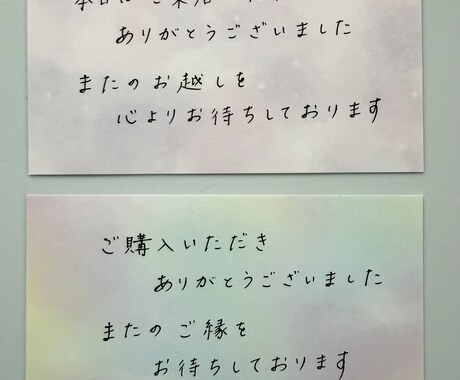 ありがとうございました
またのお越しを
心よりお待ちしております
ご購入いただき
ありがとうございました
またのご縁を
お待ちしております